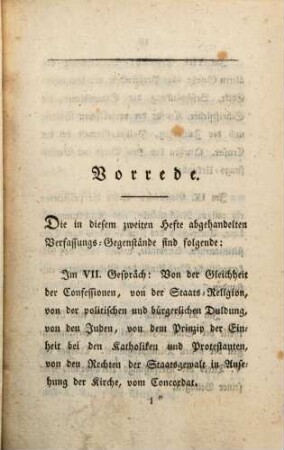 Vorrede.
Die in diesem zweiten Hefte abgehandelten
Verfassungs-Gegenstände sind folgende:
Im VII. Gespräch: Von der Gleichheit
der Confessionen, von der Staats-Religion,
von der politischen und bürgerlichen Duldung,
von den Juden, von dem Prinzip der Ein-
heit bei den Katholiken und Protestanten,
von den Rechten der Staatsgewalt in Anse-
hung der Kirche, vom Concordat.
1